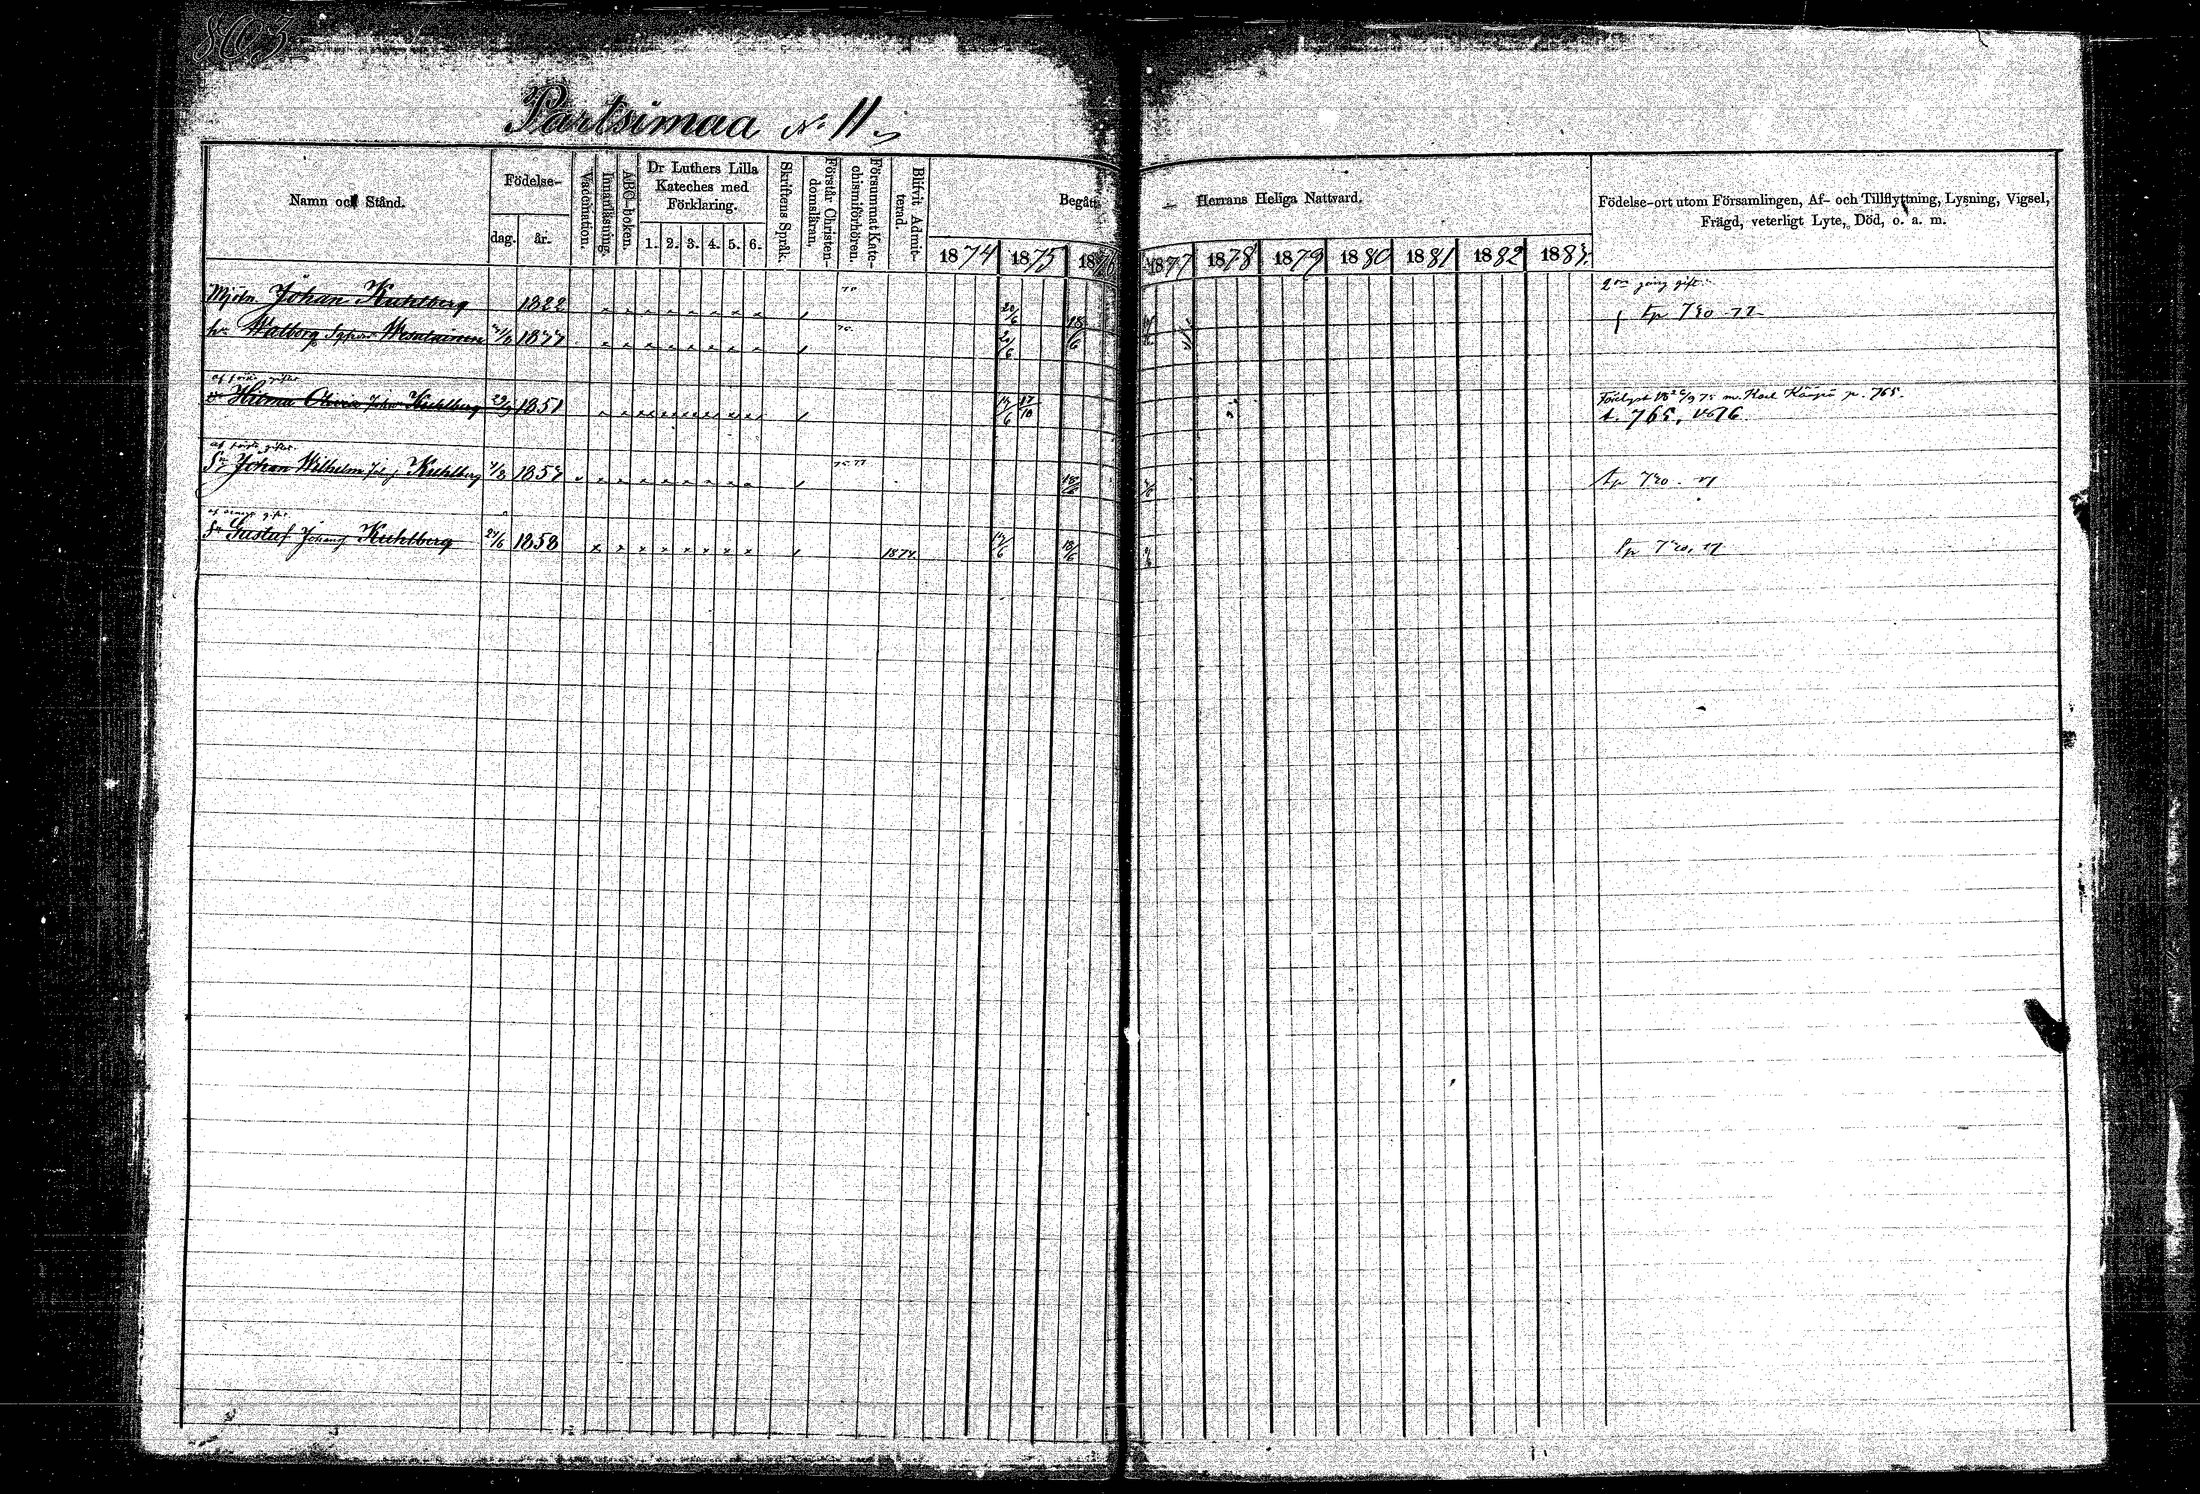 803
Partsimaa No 11
Namn och Stånd.
Födelse-
dag.
år.
Vaccination.
Innanläsning.
ABC-boken.
Dr Luthers Lilla
Kateches med
Förklaring.
1. 2. 3. 4. 5. 6.
Skriftens Språk.
Förstår Christen-
domsläran.
Försummat Kate-
chismiförhören.
Blifvit Admit-
terad.
Begått
Herrans Heliga Nattvard.
1874 1875 1876 1877 1878 1879 1880 1881 1882 1883
Födelse-ort utom Församlingen, Af- och Tillflyttning, Lysning, Vigsel,
Frägd, veterligt Lyte, Död, o. a. m.
Mjöln. Johan Kuhlberg 1822 20/6 18/6
2 gång gift
tp 720 77
hu Walborg 20/6
af förra giftet
Hilma Kuhlberg 29/9 1851 17/10
m. Karl p. 765.
t. 765, 76
af förra giftet
Sn Johan Wilhelm Joh. Kuhlberg 1857 18/6
tp 720
gift
Sn Gustaf Johansf Kuhlberg 1858 1874 18/6
tp 720, 77